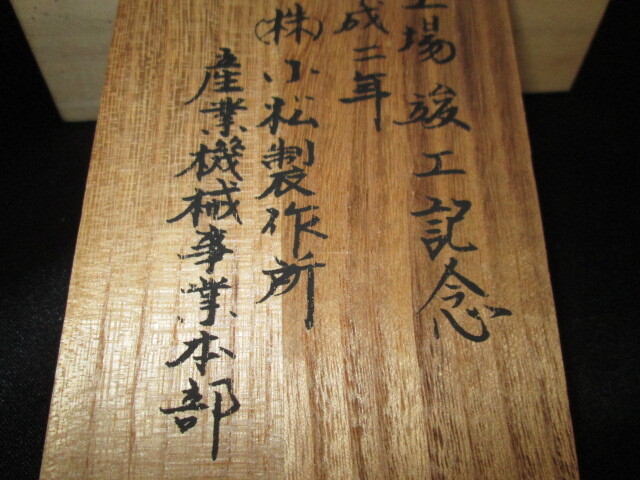 工場竣工記念
成二年
㈱小松製作所
産業機械事業本部